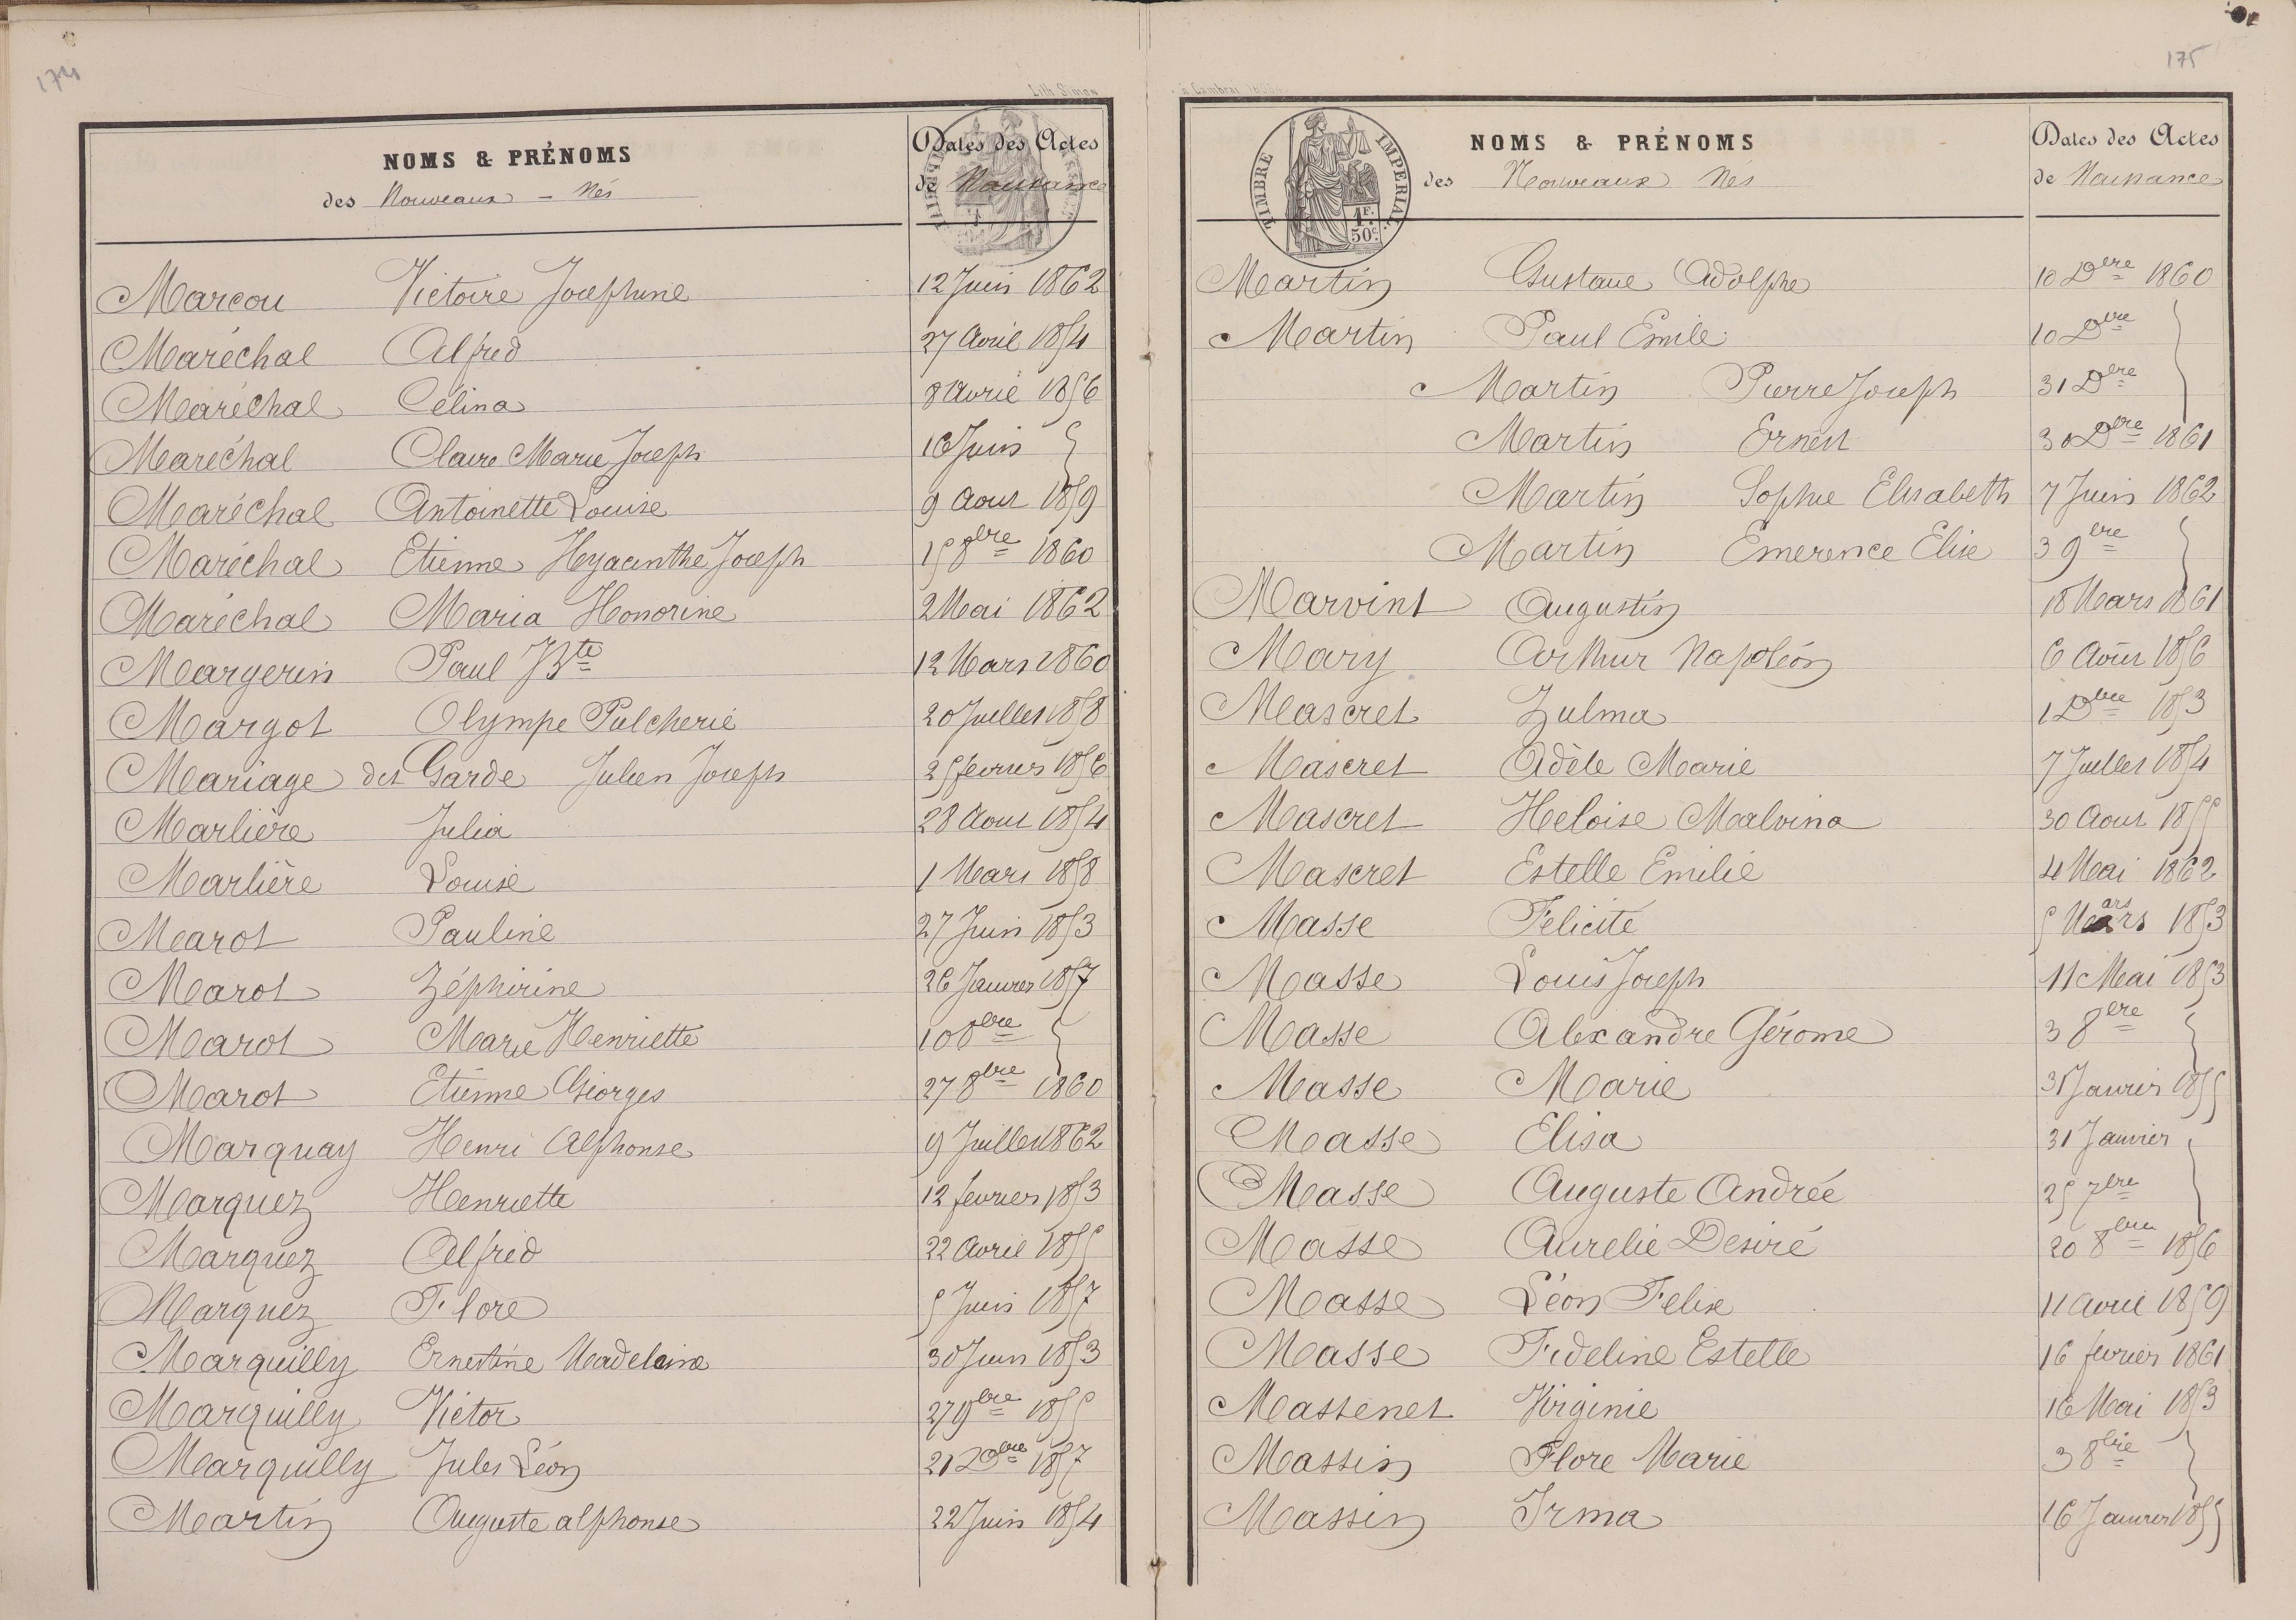 174
Lith. Simon
NOMS & PRÉNOMS
des Nouveaux - Nés
Dates des Actes
de Naissance
Marcou Victoire Josephine 12 Juin 1862
Maréchal Alfred 27 Avril 1854
Maréchal Célina 8 Avril 1856
Maréchal Claire Marie Joseph 16 Juin }
Maréchal Antoinette Louise 9 Aout 1859
Maréchal Etienne Hyacinthe Joseph 15 8bre 1860
Maréchal Maria Honorine 2 Mai 1862
Margerin Paul J Bte 12 Mars 1860
Margot Olympe Pulcherie 20 Juillet 1858
Mariage det Garde Julien Joseph 25 fevrier 1856
Marlière Julia 28 Aout 1854
Marlière Louise 1 Mars 1858
Marot Pauline 27 Juin 1853
Marot Zéphirine 26 Janvier 1857
Marot Marie Henriette 10 8bre }
Marot Etienne Georges 27 8bre 1860
Marquay Henri Alphonse 9 Juillet 1862
Marquez Henriette 12 fevrier 1853
Marquez Alfred 22 Avril 1855
Marquez Flore 5 Juin 1857
Marquilly Ernestine Madeleine 30 Juin 1853
Marquilly Victor 27 9bre 1855
Marquilly Jules Léon 21 Dbre 1857
Martin Auguste alphonse 22 Juin 1854
175
à Cambrai
TIMBRE IMPÉRIAL
1F.
50c.
NOMS & PRÉNOMS
des Nouveaux Nés
Dates des Actes
de Naissance
Martin Gustave Adolphe 10 Dbre 1860
Martin Paul Emile 10 Dbre }
Martin Pierre Joseph 31 Dbre
Martin Ernest 30 Dbre 1861
Martin Sophie Elisabeth 7 Juin 1862
Martin Emerence Elise 3 9bre }
Marvint Augustin 18 Mars 1861
Mary Arthur Napoléon 6 Aout 1856
Mascret Zulma 1 Dbre 1853
Mascret Adèle Marie 7 Juillet 1854
Mascret Heloise Malvina 30 Aout 1855
Mascret Estelle Emilie 4 Mai 1862
Masse Felicité 5 Mars 1853
Masse Louis Joseph 11 Mai 1853
Masse Alexandre Gérome 3 8bre }
Masse Marie 31 Janvier 1855
Masse Elisa 31 Janvier }
Masse Auguste Andrée 25 7bre
Masse Aurelie Desiré 20 8bre 1856
Masse Léon Felix 11 Avril 1859
Masse Fideline Estelle 16 fevrier 1861
Massenet Virginie 16 Mai 1853
Massin Flore Marie 3 8bre }
Massin Irma 16 Janvier 1855